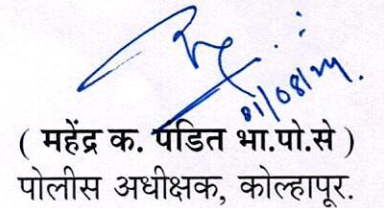 01/08/24.
( महेंद्र क. पंडित भा.पो.से )
पोलीस अधीक्षक, कोल्हापूर.